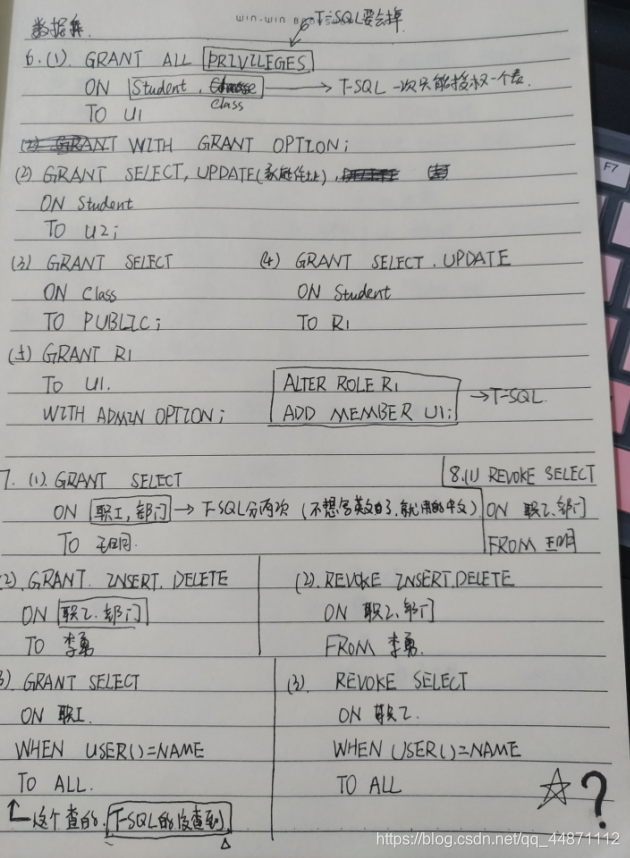 数据库
WIN-WIN
T-SQL要去掉
6.(1). GRANT ALL PRIVILEGES
ON Student, Class → T-SQL 一次只能授权一个表.
TO U1
WITH GRANT OPTION;
(2) GRANT SELECT, UPDATE(家庭住址)
ON Student
TO U2;
(3) GRANT SELECT
ON Class
TO PUBLIC;
(4) GRANT SELECT. UPDATE
ON Student
TO R1
(5) GRANT R1
TO U1.
WITH ADMIN OPTION;
ALTER ROLE R1
ADD MEMBER U1;
→T-SQL
7. (1). GRANT SELECT
ON 职工, 部门 → T-SQL分两次 (不想写英文了,就用的中文)
TO 王明.
8.(1) REVOKE SELECT
ON 职工、部门
FROM 王明
(2). GRANT. INSERT. DELETE
ON 职工、部门
TO 李勇
(2). REVOKE INSERT.DELETE
ON 职工、部门
FROM 李勇.
3). GRANT SELECT
ON 职工.
WHEN USER()=NAME
TO ALL.
这个查的. T-SQL的没查到
(3). REVOKE SELECT
ON 职工.
WHEN USER()=NAME
TO ALL
☆?
F7
https://blog.csdn.net/qq_44871112